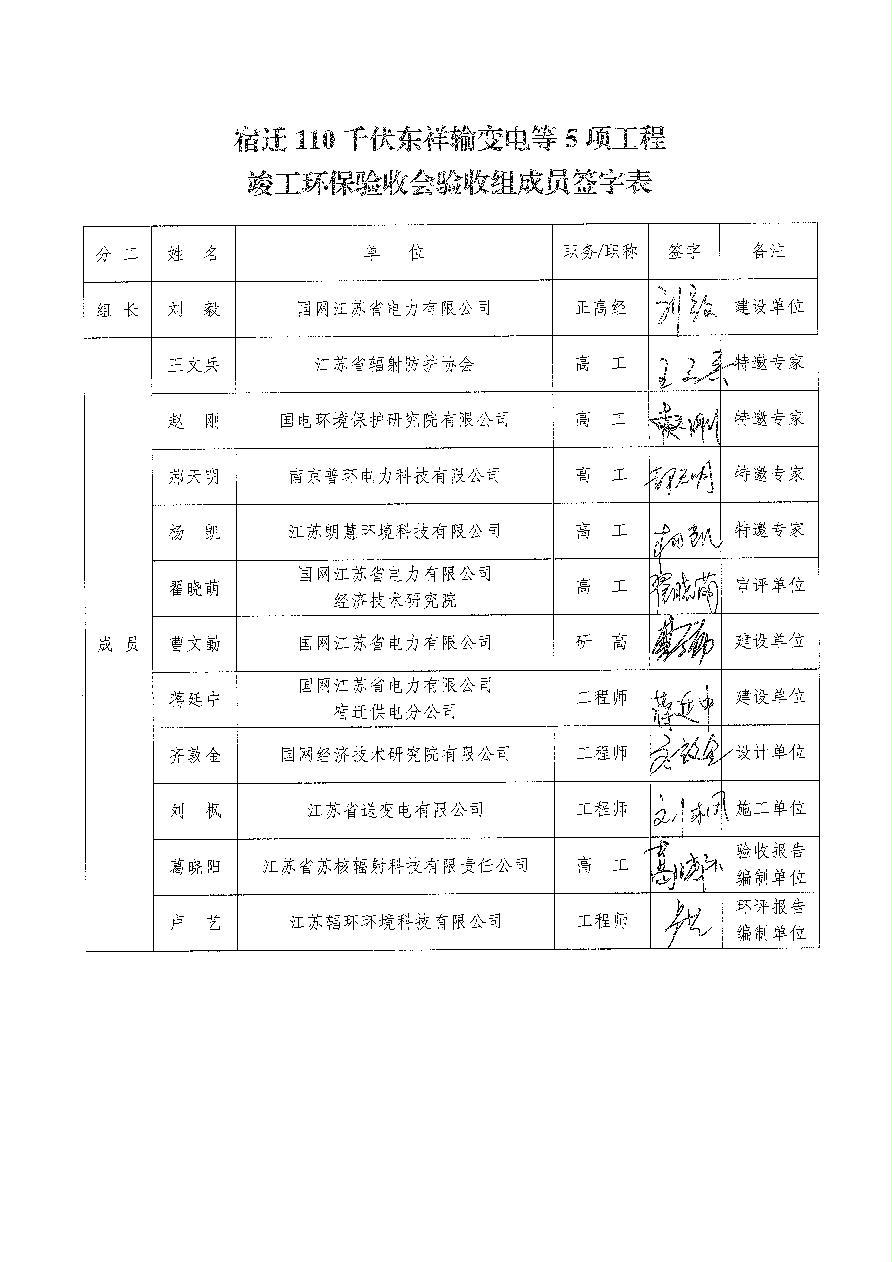 宿迁 110 千伏东祥输变电等 5 项工程
竣工环保验收会验收组成员签字表
分 工 姓 名 单 位 职务/职称 签字 备注
组 长 刘 毅 国网江苏省电力有限公司 正高经 刘毅 建设单位
王文兵 江苏省辐射防护协会 高 工 王文兵 特邀专家
赵 刚 国电环境保护研究院有限公司 高 工 赵刚 特邀专家
郝天明 南京普环电力科技有限公司 高 工 郝天明 特邀专家
杨 凯 江苏朗慧环境科技有限公司 高 工 杨凯 特邀专家
翟晓萌 国网江苏省电力有限公司
经济技术研究院 高 工 翟晓萌 审评单位
成 员 曹文勤 国网江苏省电力有限公司 研 高 曹文勤 建设单位
蒋延宁 国网江苏省电力有限公司
宿迁供电分公司 工程师 建设单位
齐敦金 国网经济技术研究院有限公司 工程师 设计单位
刘 枫 江苏省送变电有限公司 工程师 刘枫 施工单位
葛晓阳 江苏省苏核辐射科技有限责任公司 高 工 葛晓阳 验收报告
编制单位
卢 艺 江苏辐环环境科技有限公司 工程师 卢艺 环评报告
编制单位